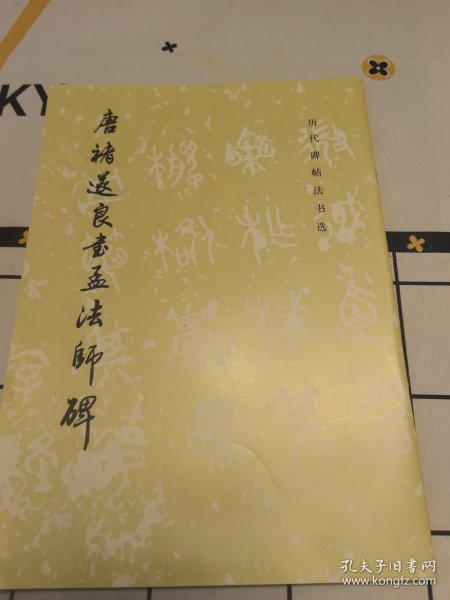 历代碑帖法书选
唐褚遂良书孟法師碑
KY
孔夫子旧书网
www.kongfz.com